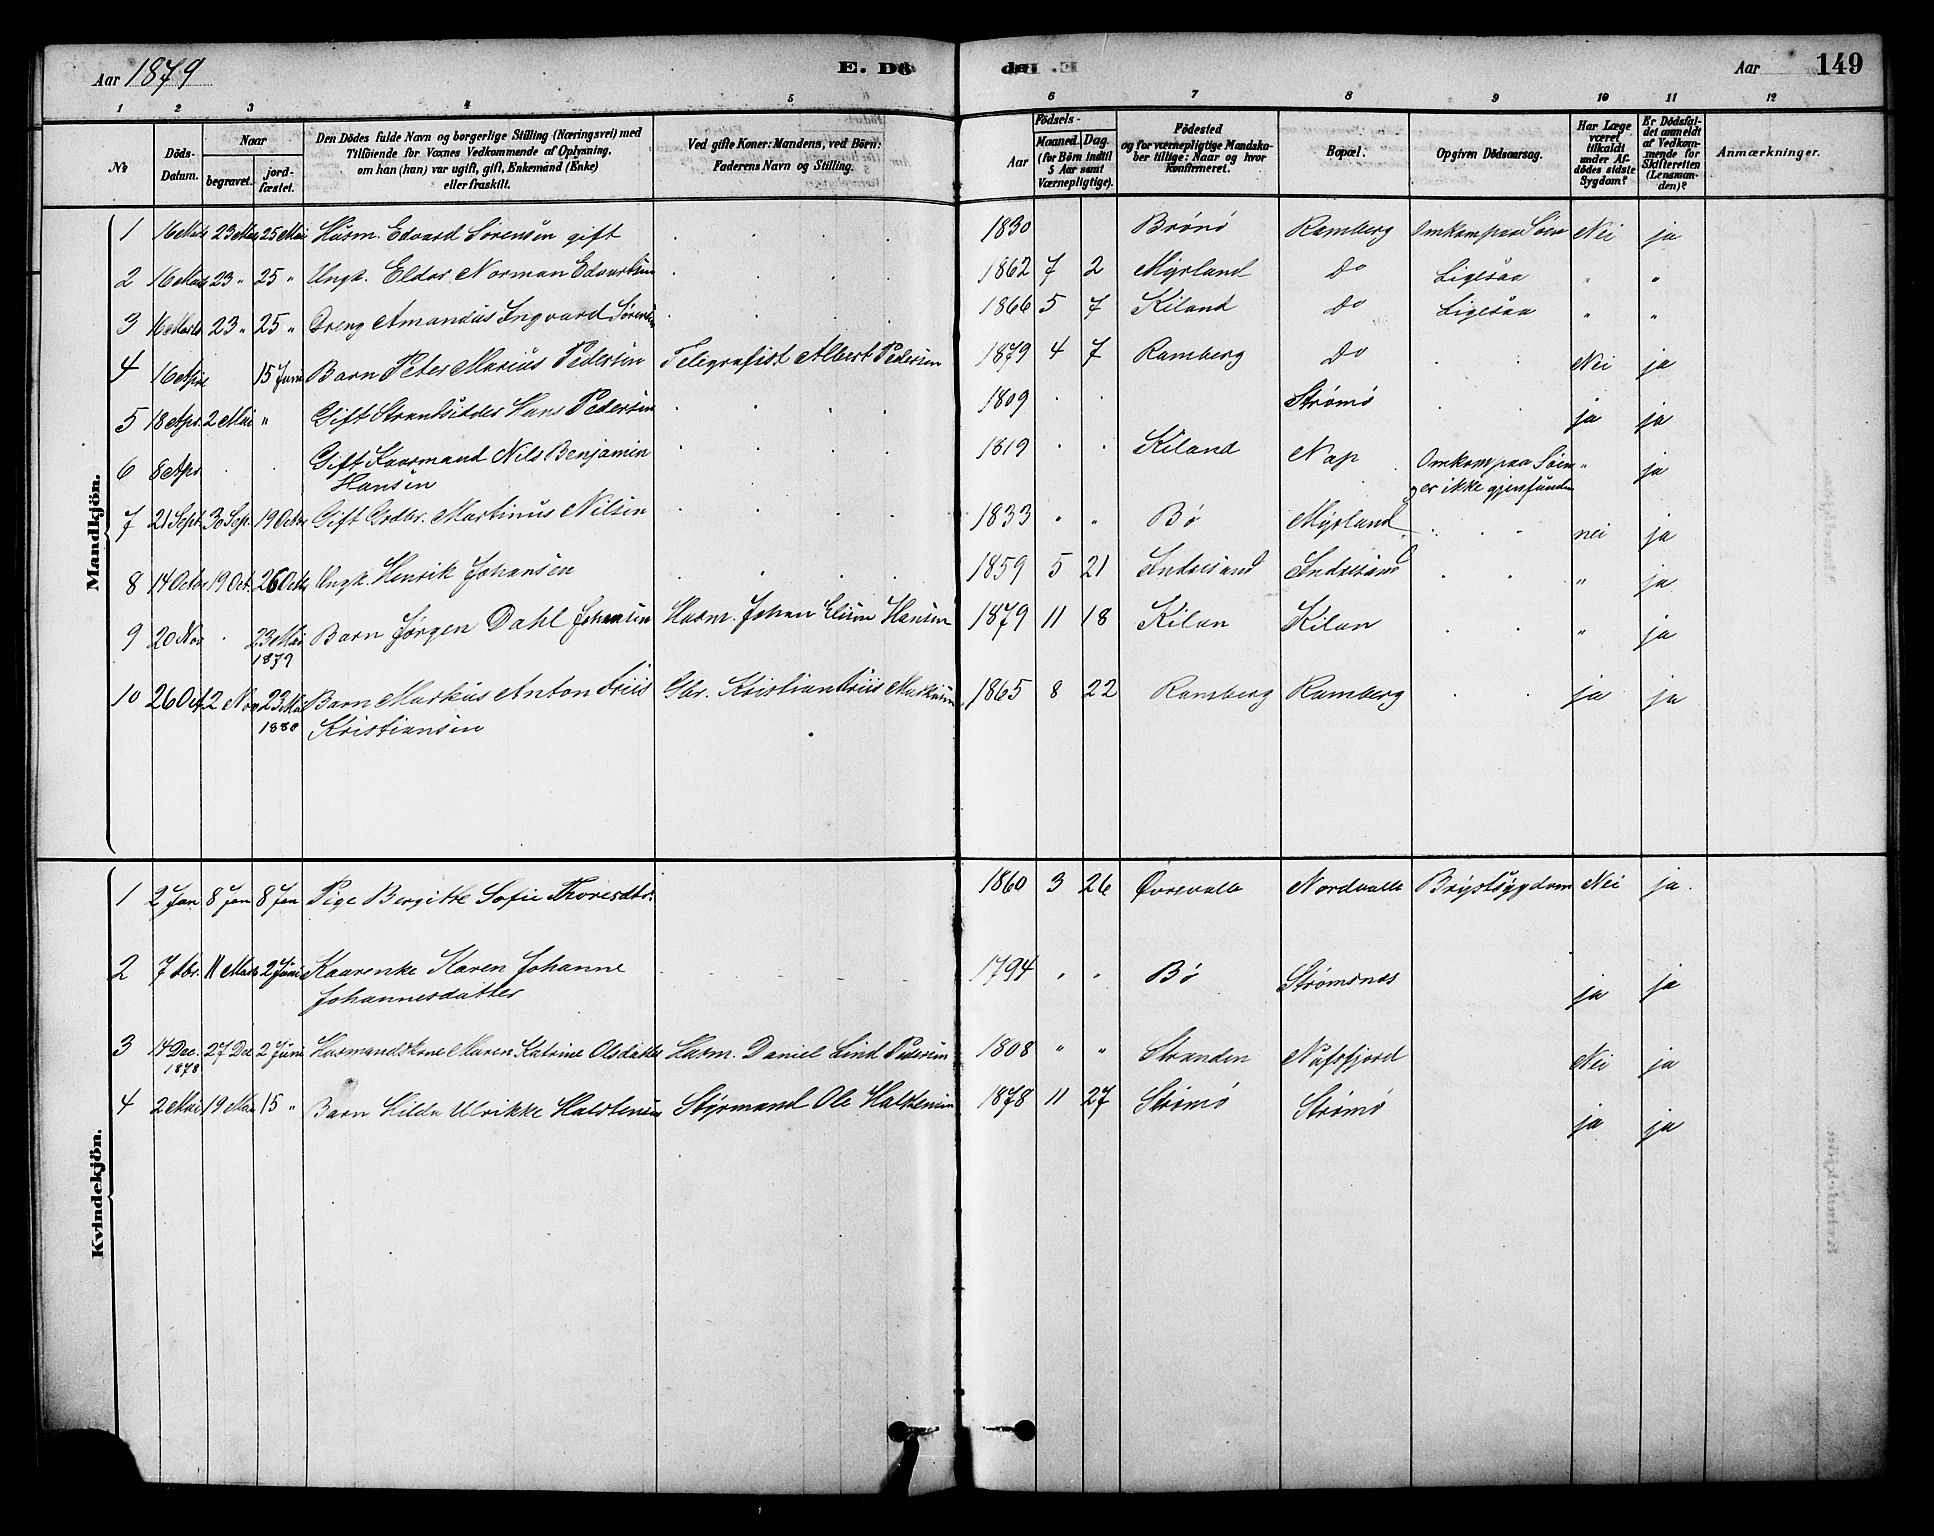 Aar 1879 E. Dö de. Aar 149
1 2 3 4 5 6 7 8 9 10 11 12
№ Döds-Datum. Naar begravet. jord-fæstet. Den Dödes fulde Navn og borgerlige Stilling (Næringsvei) med Tilföiende for Voxnes Vedkommende af Oplysning, om han (hun) var ugift, gift, Enkemand (Enke) eller fraskilt. Ved gifte Koner: Mandens, ved Börn: Faderens Navn og Stilling. Födsels- Aar Maaned. Dag. (for Börn indtil 5 Aar samt Værnepligtige). Födested og for værnepligtige Mandskaber tillige: Naar og hvor konfirmeret. Bopæl. Opgiven Dödsaarsag. Har Læge været tilkaldt under Afdödes sidste Sygdom? Er Dödsfaldet anmeldt af Vedkommende for Skifteretten (Lensmanden)? Anmærkninger.
Mandkjön.
1 16 Marts 23 Mai 25 Mai Husm. Edvard Sørensen gift 1830 Brønø Ramberg Omkom paa Søen Nei ja
2 16 Marts 23 " 25 " Ungk. Eldor Norman Edvardsen 1862 7 2 Myrland Do Ligesaa " "
3 16 Marts 23 " 25 " Dreng Amandus Ingvard Sørensen 1866 5 7 Kiland Do Ligesaa " "
4 16 Apr 15 Juni Barn Peter Marius Pedersen Telegrafist Albert Pedersen 1879 4 7 Ramberg Do Nei ja
5 18 Apr. 2 Mai " Gift Strandsidder Hans Pedersen 1809 Strømø ja ja
6 8 Apr Gift Kaarmand Nils Benjamin 1819 Kiland Nap Omkom paa Søen " ja
Hansen er ikke gjenfunden
7 21 Sept 30 Sep. 19 Octor Gift Grdbr. Martinus Nilsen 1833 " " Bø Myrland nei ja
8 14 Octor 19 Oct. 26 Octr Ungk. Henrik Johansen 1859 5 21 Andresand Andresand " ja
9 20 Nov 23 Mai Barn Jørgen Dahl Johansen Husm. Johan Elium Hansen 1879 11 18 Kilan Kilan " ja
1879
10 26 Oct 2 Nov 23 Mai Barn Markus Anton Friis Gbr. Kristian Friis Markusen 1865 8 22 Ramberg Ramberg ja ja
1880 Kristiansen
Kvindekjön.
1 2 Jan 8 Jan 8 Jan Pige Bergitte Sofie Thoresdtr. 1860 3 26 Øvrevalle Nordvalle Brystsygdom Nei ja.
2 7 11 Marts 2 Juni Kaarenke Karen Johanne 1794 " " Bø Strømsnes ja ja
Johannesdatter
3 14 Dec. 27 Dec 2 Juni Husmandskone Maren Katrine Olsdatter Husm. Daniel Lind Pedersen 1808 " " Stranden Nufsfjord Nei ja
1878
4 2 Mai 19 Mai 15 " Barn Hilda Ulrikke Halstensen Styrmand Ole Halstensen 1878 11 27 Strømø Strømø ja ja